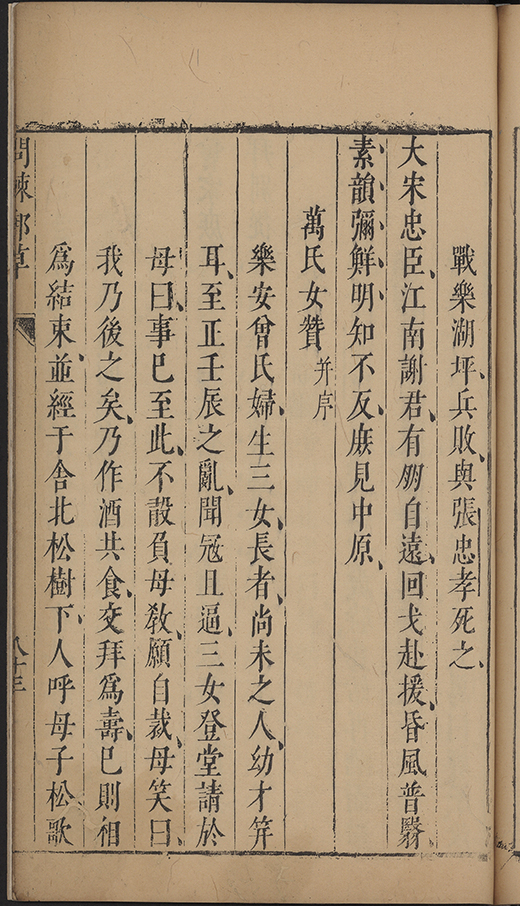 戰樂湖坪、兵敗、與張忠孝死之、
大宋忠臣、江南謝君、有朋自遠、回戈赴援、昏風普翳、
素韻彌鮮、明知不反、庶見中原、
萬氏女贊 并序
樂安曾氏婦、生三女、長者、尚未之人、幼才笄
耳、至正壬辰之亂、聞寇且逼、三女登堂請於
母曰、事已至此、不敢負母教、願自裁、母笑曰、
我乃後之矣、乃作酒共食、交拜爲壽、已則相
爲結束、並經于舍北松樹下、人呼母子松歌
問棘郵草
八十三